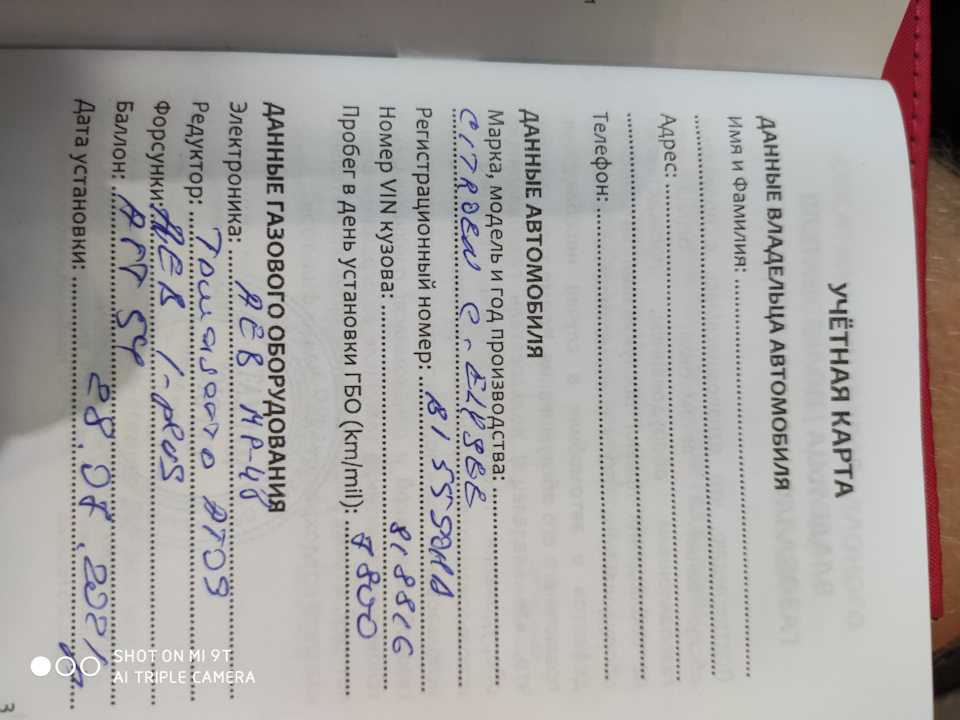 УЧЁТНАЯ КАРТА
ДАННЫЕ ВЛАДЕЛЬЦА АВТОМОБИЛЯ
Имя и Фамилия:
Адрес:
Телефон:
ДАННЫЕ АВТОМОБИЛЯ
Марка, модель и год производства:
CITROEN C.ELYSEE
Регистрационный номер:
Номер VIN кузова: 818816
Пробег в день установки ГБО (km/mil): 7800
ДАННЫЕ ГАЗОВОГО ОБОРУДОВАНИЯ
Электроника: AEB MP-48
Редуктор: Tomasetto AT09
Форсунки: AEB I-plus
Баллон: 54
Дата установки: 28.07.2021
3
SHOT ON MI 9T
AI TRIPLE CAMERA